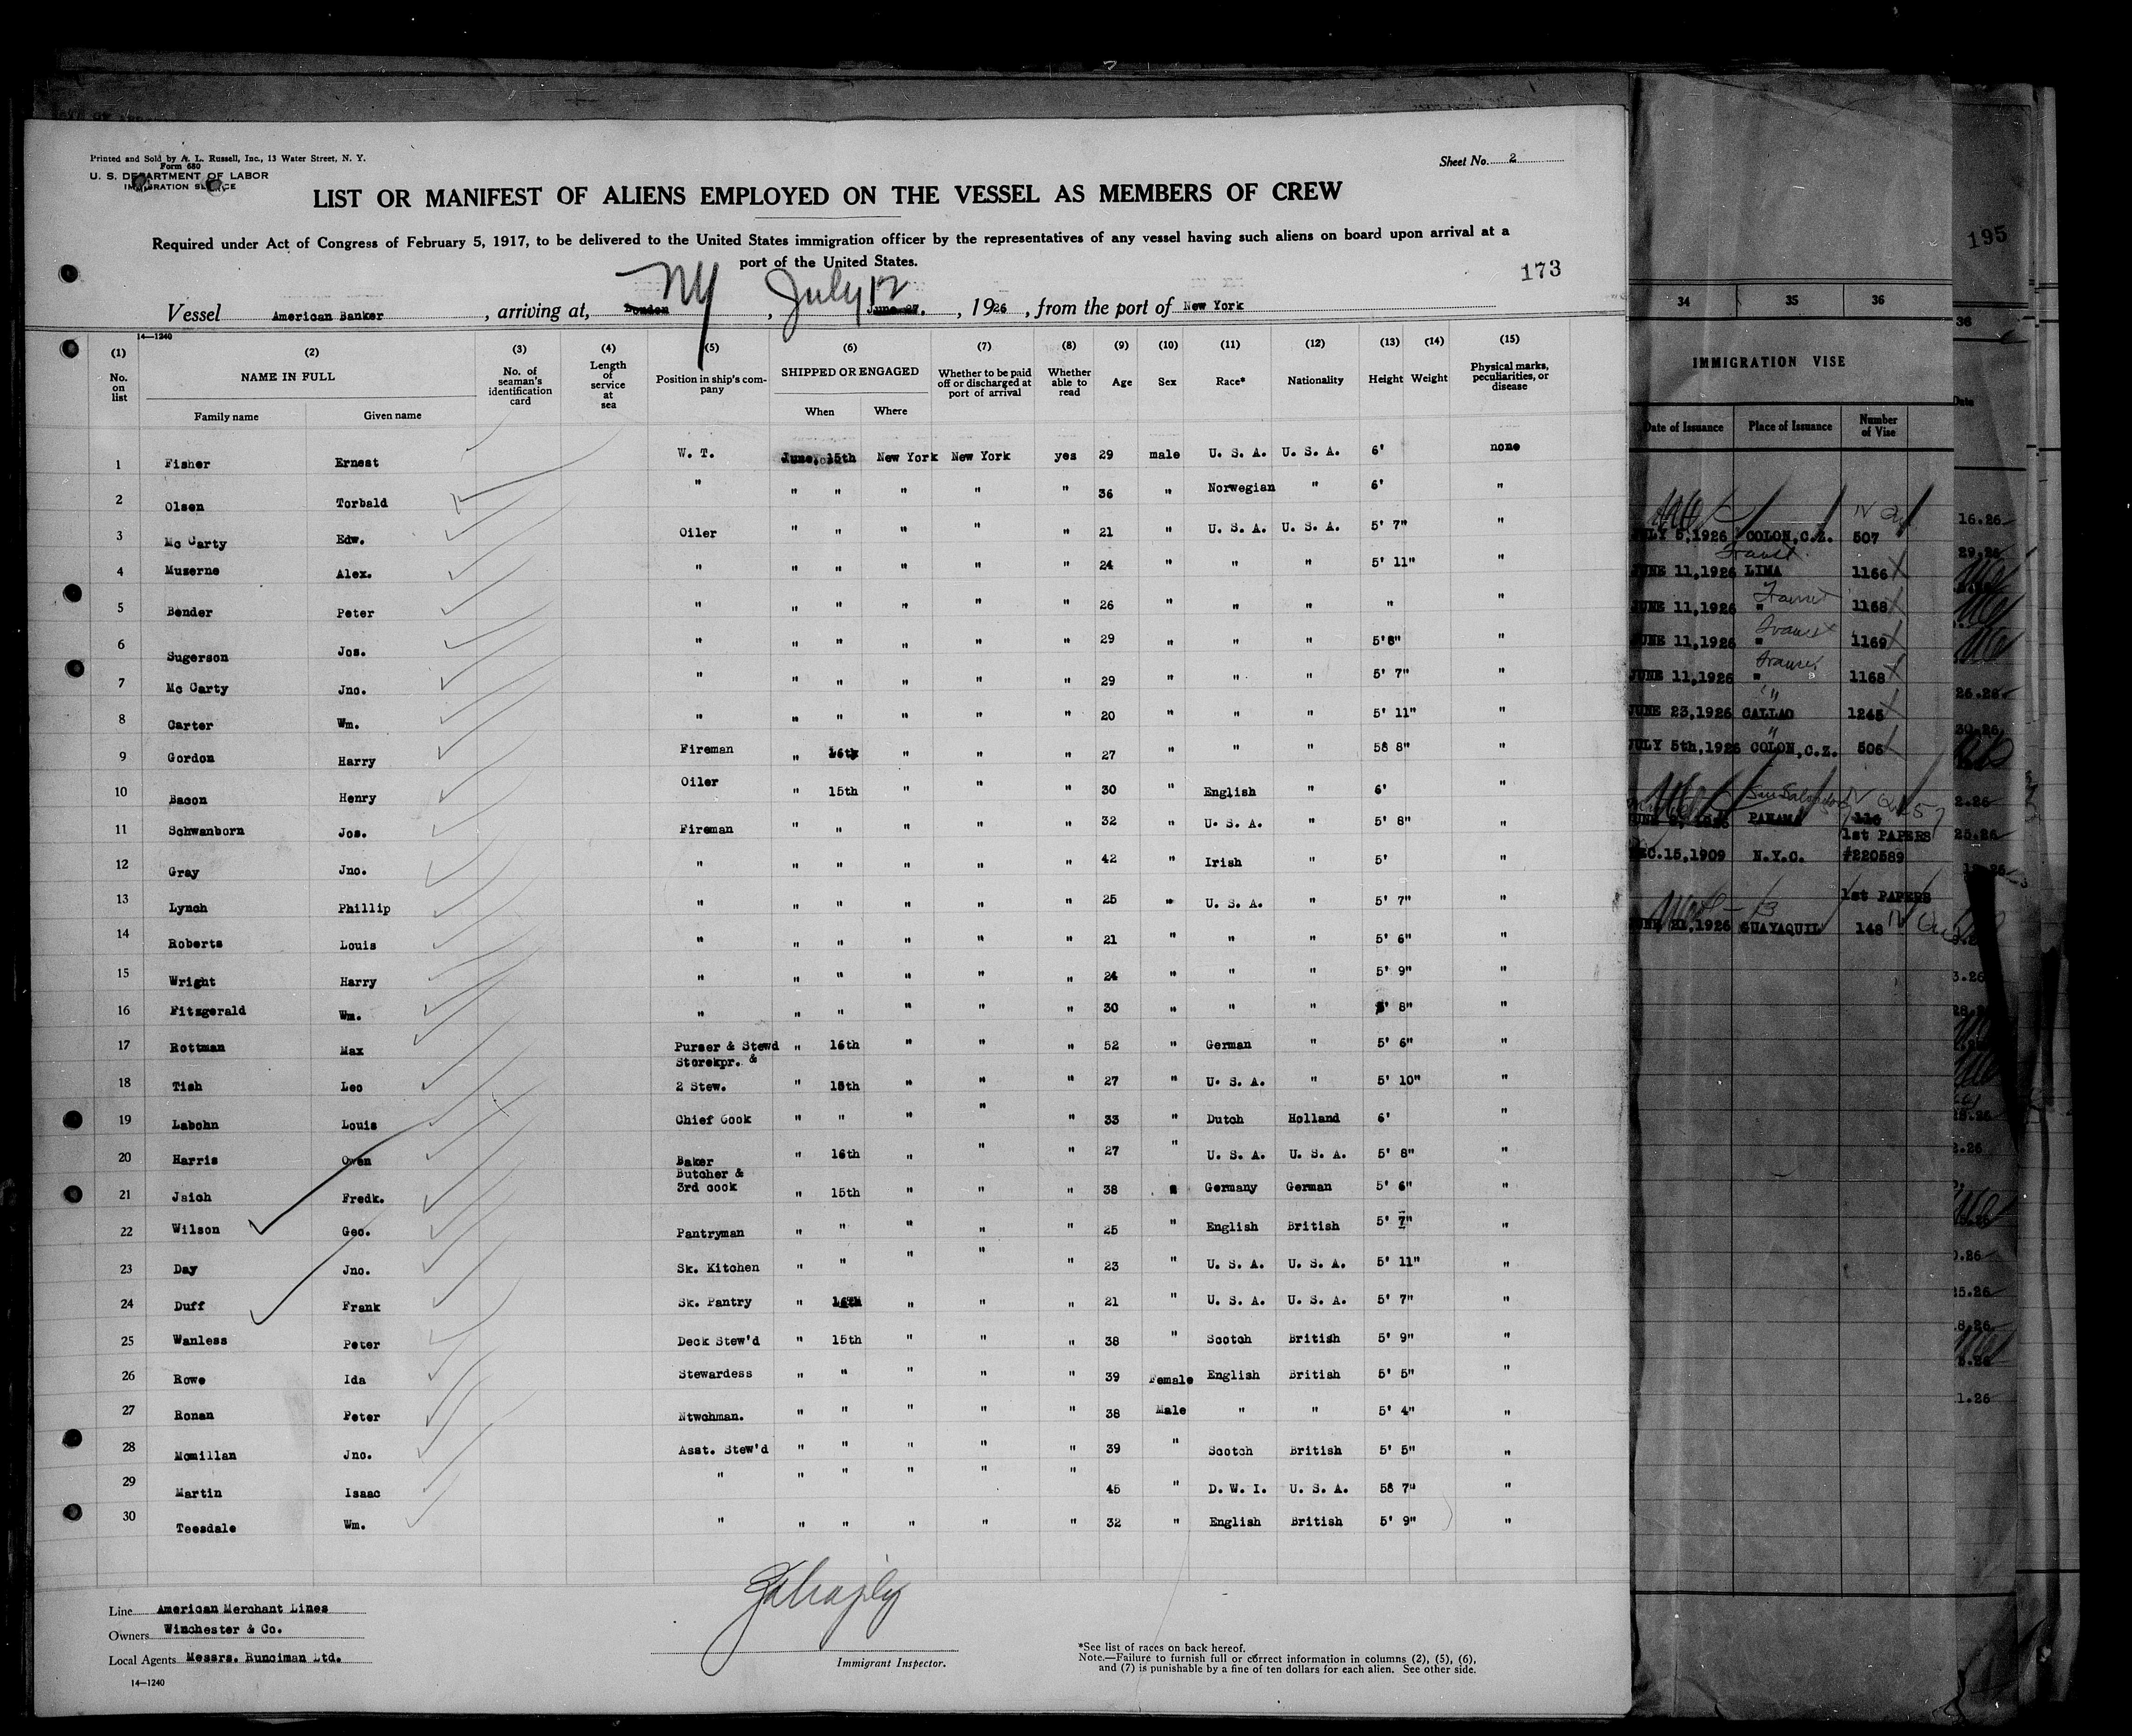 Printed and Sold by A. L. Russell, Inc., 13 Water Street, N. Y.
Form 680
U. S. DEPARTMENT OF LABOR
IMMIGRATION SERVICE
Sheet No. 2
LIST OR MANIFEST OF ALIENS EMPLOYED ON THE VESSEL AS MEMBERS OF CREW
Required under Act of Congress of February 5, 1917, to be delivered to the United States immigration officer by the representatives of any vessel having such aliens on board upon arrival at a
port of the United States.
173
NY July 12
Vessel American Banker, arriving at, London, June 27., 1926, from the port of New York
14—1240
(1) (2) (3) (4) (5) (6) (7) (8) (9) (10) (11) (12) (13) (14) (15)
No. on list NAME IN FULL Family name Given name No. of seaman's identification card Length of service at sea Position in ship's company SHIPPED OR ENGAGED When Where Whether to be paid off or discharged at port of arrival Whether able to read Age Sex Race* Nationality Height Weight Physical marks, peculiarities, or disease
1 Fisher Ernest W. T. June, 15th New York New York yes 29 male U. S. A. U. S. A. 6' none
2 Olsen Torbald " " " " " " 36 " Norwegian " 6' "
3 Mc Carty Edw. Oiler " " " " 21 " U. S. A. U. S. A. 5' 7" "
4 Muserne Alex. " " " " " " 24 " " " 5' 11" "
5 Bender Peter " " " " " " 26 " " " " "
6 Sugerson Jos. " " " " " " 29 " " " 5'8" "
7 Mc Carty Jno. " " " " " " 29 " " " 5' 7" "
8 Carter Wm. " " " " " " 20 " " " 5' 11" "
9 Gordon Harry Fireman " 16th " " " 27 " " " 58 8" "
10 Bacon Henry Oiler " 15th " " " 30 " English " 6' "
11 Schwanborn Jos. Fireman " " " " " 32 " U. S. A. " 5' 8" "
12 Gray Jno. " " " " " " 42 " Irish " 5' "
13 Lynch Phillip " " " " " " 25 " U. S. A. " 5' 7" "
14 Roberts Louis " " " " " " 21 " " " 5' 6" "
15 Wright Harry " " " " " " 24 " " " 5' 9" "
16 Fitzgerald Wm. " " " " " " 30 " " " 5' 8" "
17 Rottman Max Purser & Stewd " 16th " " " 52 " German " 5' 6" "
Storekpr. &
18 Tish Leo 2 Stew. " 15th " " " 27 " U. S. A. " 5' 10" "
19 Labohn Louis Chief Cook " " " " " 33 " Dutch Holland 6' "
20 Harris Owen Baker " 16th " " " 27 " U. S. A. U. S. A. 5' 8" "
Butcher &
21 Jaich Fredk. 3rd cook " 15th " " " 38 " Germany German 5' 6" "
22 Wilson Geo. Pantryman " " " " " 25 " English British 5' 7" "
23 Day Jno. Sk. Kitchen " " " " " 23 " U. S. A. U. S. A. 5' 11" "
24 Duff Frank Sk. Pantry " 16th " " " 21 " U. S. A. U. S. A. 5' 7" "
25 Wanless Peter Deck Stew'd " 15th " " " 38 " Scotch British 5' 9" "
26 Rowe Ida Stewardess " " " " " 39 Female English British 5' 5" "
27 Ronan Peter Ntwchman. " " " " " 38 Male " " 5' 4" "
28 Mcmillan Jno. Asst. Stew'd " " " " " 39 " Scotch British 5' 5" "
29 Martin Isaac " " " " " " 45 " D. W. I. U. S. A. 58 7" "
30 Teesdale Wm. " " " " " " 32 " English British 5' 9" "
Line American Merchant Lines
Owners Winchester & Co.
Local Agents Messrs. Runciman Ltd.
14—1240
Immigrant Inspector.
*See list of races on back hereof.
Note.—Failure to furnish full or correct information in columns (2), (5), (6),
and (7) is punishable by a fine of ten dollars for each alien. See other side.
195
34 35 36
36
IMMIGRATION VISE
Date
Date of Issuance Place of Issuance Number of Vise
JULY 5,1926 COLON,C.Z. 507
Transit
JUNE 11,1926 LIMA 1166
Transit
JUNE 11,1926 " 1168
Transit
JUNE 11,1926 " 1169
Transit
JUNE 11,1926 " 1168
JUNE 23,1926 CALLAO 1245
JULY 5th,1926 COLON,C.Z. 506
San Salvador
PANAMA
1st PAPERS
DEC.15,1909 N.Y.C. #220589
1st PAPERS
JUNE 21,1926 GUAYAQUIL 148
16.26
29.26
26.26
30.26
2.26
25.26